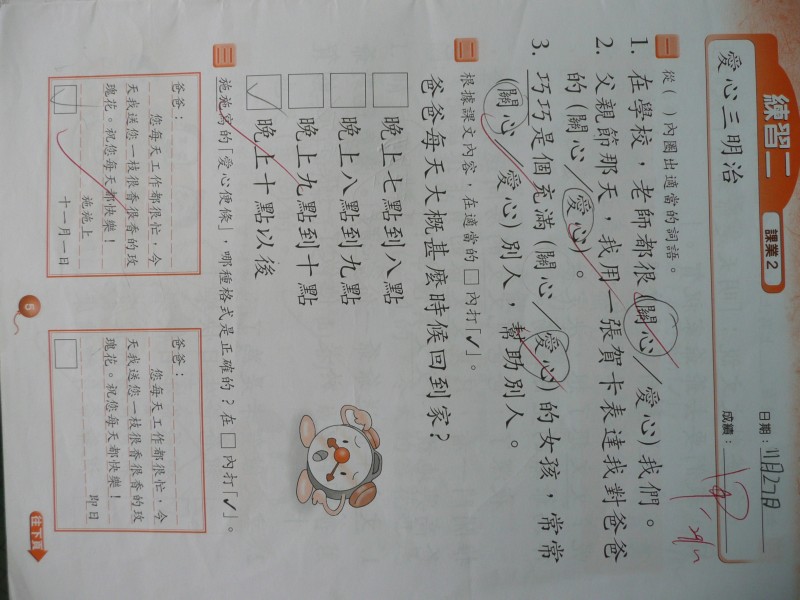 練習二
課業2
愛心三明治
日期：11月27日
成績：
一 從( )內圈出適當的詞語。
1. 在學校，老師都很(關心／愛心)我們。
2. 父親節那天，我用一張賀卡表達我對爸爸
的(關心／愛心)。
3. 巧巧是個充滿(關心／愛心)的女孩，常常
(關心／愛心)別人，幫助別人。
二 根據課文內容，在適當的□內打「✓」。
爸爸每天大概甚麼時候回到家？
□ 晚上七點到八點
□ 晚上八點到九點
□ 晚上九點到十點
✓ 晚上十點以後
三 施施寫的「愛心便條」，哪種格式是正確的？在□內打「✓」。
爸爸：
您每天工作都很忙，今
天我送您一枝很香很香的玫
瑰花。祝您每天都快樂！
施施上
十一月一日
✓
爸爸：
您每天工作都很忙，今
天我送您一枝很香很香的玫
瑰花。祝您每天都快樂！
即日
5
往下頁